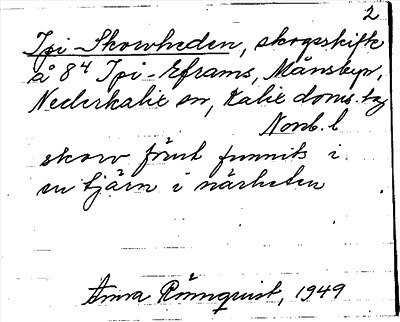 2
Ipi-Skowheden, skogsskifte
å 8⁴ Ipi-Eframs, Månsbyn,
Nederkalix sn, Kalix doms.
Norrb. l
skorv förut funnits i
en tjärn i närheten
Anna Rönnquist, 1949